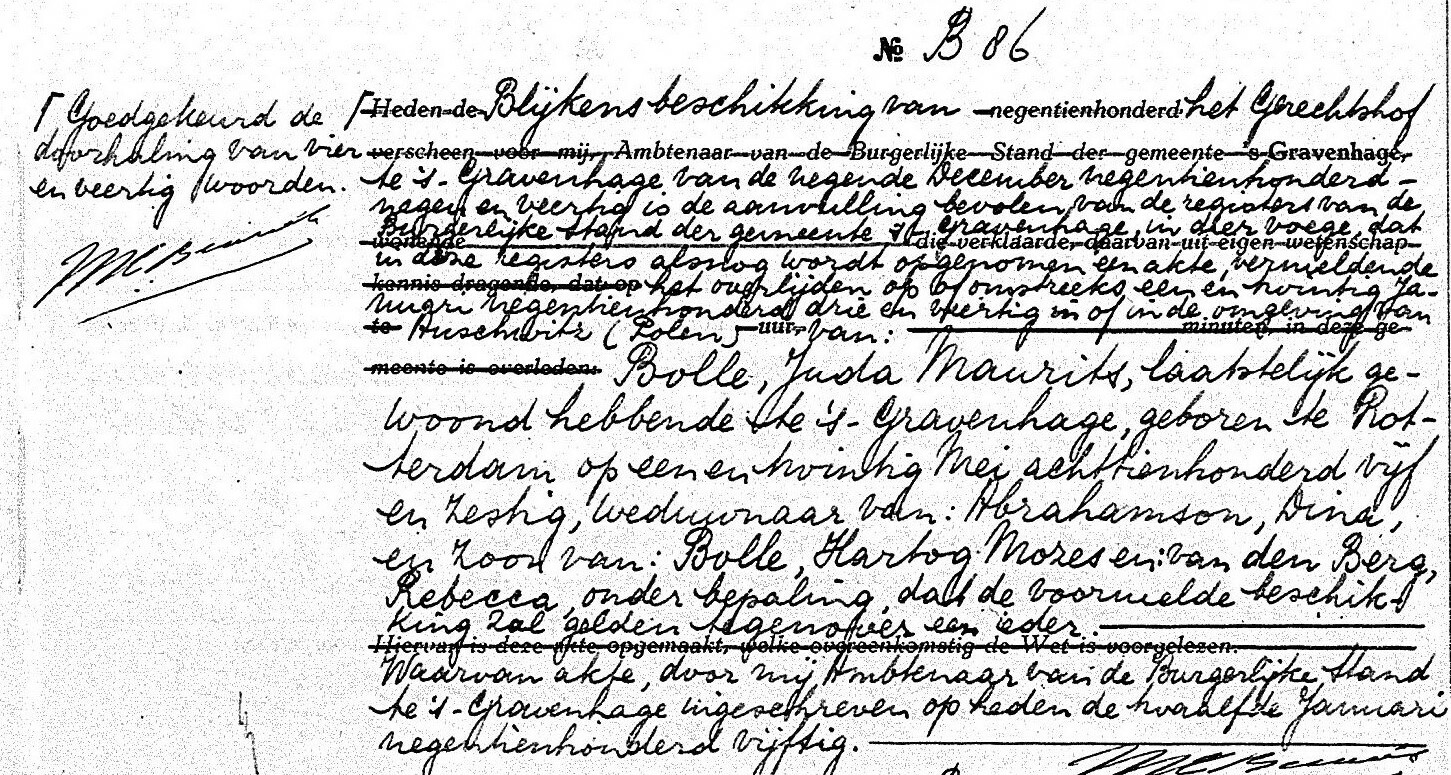 № B 86
Goedgekeurd de
doorhaling van vier
en veertig woorden.
Heden de Blijkens beschikking van negentienhonderd het Gerechtshof
verscheen voor mij, Ambtenaar van de Burgerlijke Stand der gemeente 's-Gravenhage,
te 's-Gravenhage van de negende December negentienhonderd-
negen en veertig is de aanvulling bevolen van de registers van de
Burgerlijke Stand der gemeente 's Gravenhage, in dier voege, dat
wonende die verklaarde, daarvan uit eigen wetenschap
in deze registers alsnog wordt opgenomen een akte, vermeldende
kennis dragende, dat op het overlijden op of omstreeks een en twintig Ja-
nuari negentienhonderd drie en veertig in of in de omgeving van
te Auschwitz (Polen) uur, van: minuten, in deze ge-
meente is overleden: Bolle, Juda Maurits, laatstelijk ge-
woond hebbende te 's-Gravenhage, geboren te Rot-
terdam op een en twintig Mei achttienhonderd vijf
en zestig, weduwnaar van: Abrahamson, Dina,
en zoon van: Bolle, Hartog Mozes en: van den Berg,
Rebecca, onder bepaling, dat de voormelde beschik-
king zal gelden tegenover een ieder.
Hiervan is deze akte opgemaakt, welke overeenkomstig de Wet is voorgelezen.
Waarvan akte, door mij Ambtenaar van de Burgerlijke Stand
te 's-Gravenhage ingeschreven op heden de twaalfde Januari
negentienhonderd vijftig.